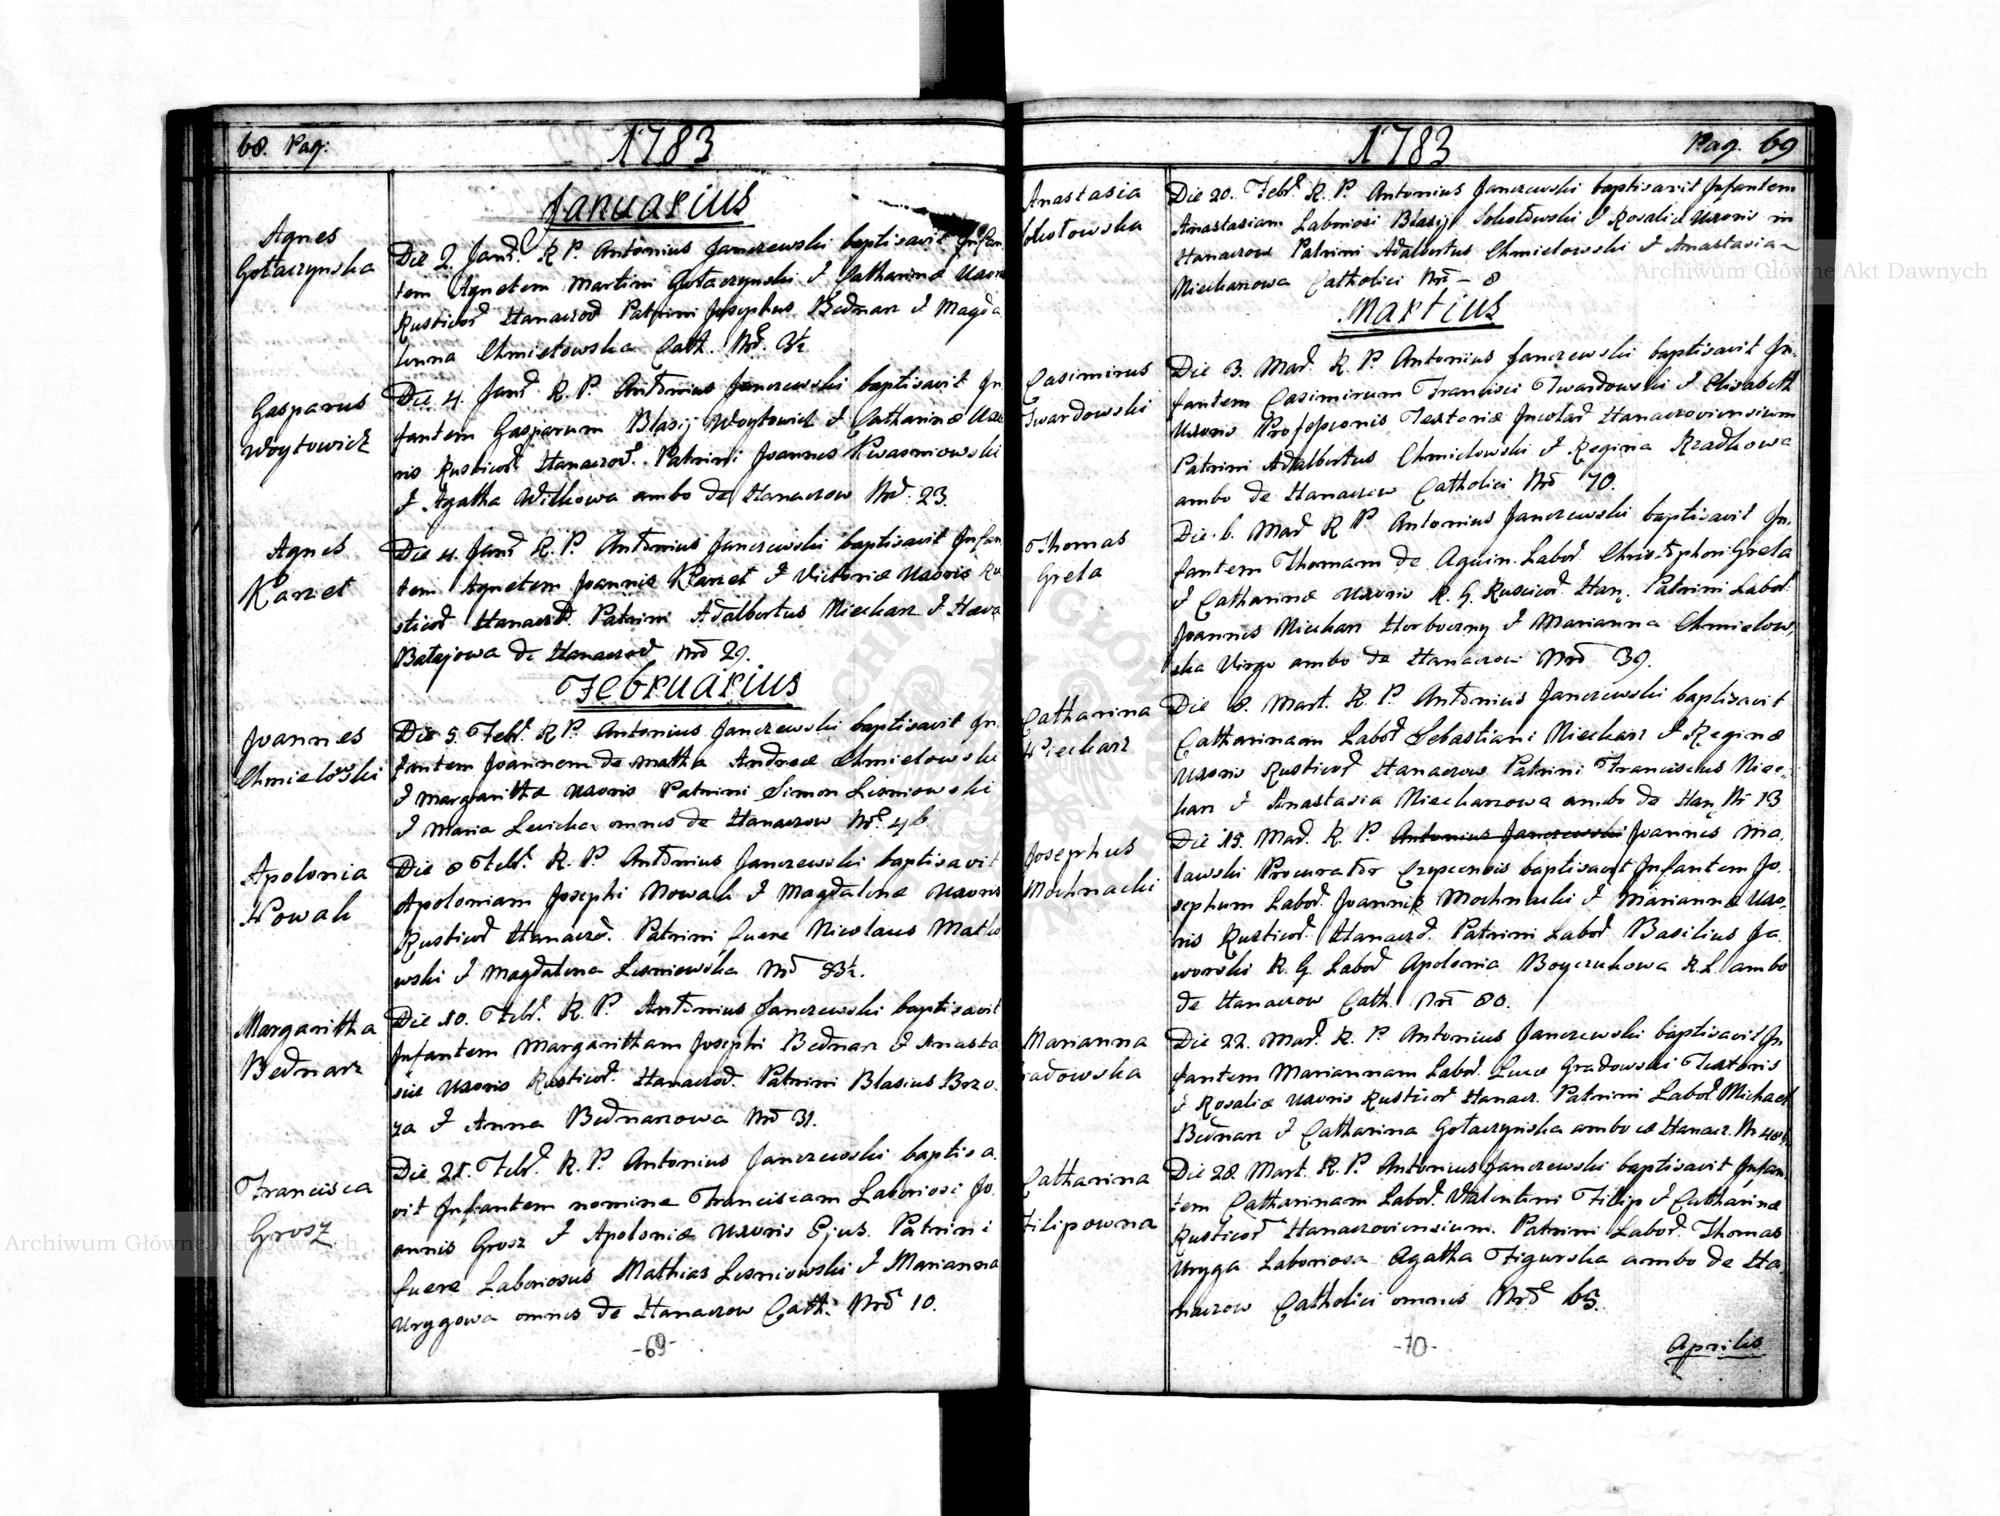 68. Pag:
1783
Januarius
Agnes
Gołaczynska
Die 2. Janr. R. P. Antonius Janczewski baptisavit Infan
tem Agnetem Martini Gołaczynski & Catharinæ Uxoris
Rusticor Hanaczod Patrini Josephus Bednarz & Magda
lenna Chmielowska Cath. Nro. 3½
Gasparus
Woytowicz
Die 4. Janr. R. P. Antonius Janczewski baptisavit In
fantem Gasparum Blasij Woytowicz & Catharinæ Uxo
ris Rusticor Hanaczod. Patrini Joannes Kwasniowski
& Agatha Witkowa ambo de Hanaczow Nro. 23.
Agnes
Karzet
Die 4. Janr R. P. Antonius Janczewski baptisavit Infan
tem Agnetem Joannis Karzet & Victoriæ Uxoris Ru
sticor Hanaczod Patrini Adalbertus Piekarz & Hæva
Batejowa de Hanaczod Nro 29.
Februarius
Joannes
Chmielowski
Die 5. Febr. R P. Antonius Janczewski baptisavit In,
fantem Joannem de matha Andreæ Chmielowski
& Margarithæ Uxoris Patrini Simon Lisniowski
& Maria Levicka omnes de Hanaczow Nro. 46.
Apolonia
Nowak
Die 8 Febr. R. P. Antonius Janczewski baptisavit
Apoloniam Josephi Nowak & Magdalenæ Uxoris
Rusticor Hanaczd. Patrini fuere Nicolaus Matko
wski & Magdalena Lisniewska Nro 83½.
Margaritha
Bednarz
Die 10. Febr. R. P. Antonius Janczewski baptisavit
Infantem Margaritham Josephi Bednarz & Anasta
siæ Uxoris Rusticor. Hanaczod. Patrini Blasius Bozo.
za & Anna Bednarzowa Nro 31.
Francisca
Grosz
Die 21. Febr. R. P. Antonius Janczewski baptisa.
vit Infantem nomine Franciscam Laboriosi Jo.
annis Grosz & Apoloniæ Uxoris Ejus. Patrini
fuere Laboriosus Mathias Lisniowski & Marianna
Urygowa omnes de Hanaczow Cath. Nro 10.
-69-
1783
Pag. 69
Anastasia
Sokołowska
Die 20. Febr. R. P. Antonius Janczewski baptisavit Infantem
Anastasiam Laboriosi Blasij Sokołowski & Rosaliæ Uxoris in
Hanaczow Patrini Adalbertus Chmielowski & Anastasia
Piekarzowa Catholici Nro - 8
Martius
Casimirus
Twardowski
Die 3. Mar. R. P. Antonius Janczewski baptisavit In,
fantem Casimirum Francisci Twardowski & Elisabeth
Uxoris Professionis Textoriæ Incolar Hanaczoviensium
Patrini Adalbertus Chmielowski & Regina Rzadkowa
ambo de Hanaczow Catholici Nro 70.
Thomas
Greta
Die. 6. Mar R P. Antonius Janczewski baptisavit In,
fantem Thomam de Aquin. Labor. Christophori Greta
& Catharinæ Uxoris R. G. Rusticor. Han. Patrini Labor.
Joannes Piekarz Horboczny & Marianna Chmielow,
ska Virgo ambo de Hanaczow Nro 39.
Catharina
Piekarz
Die 8. Mart. R. P. Antonius Janczewski baptisavit
Catharinam Labor Sebastiani Piekarz & Reginæ
Uxoris Rusticor Hanaczow Patrini Franciscus Piee,
karz & Anastasia Piekarzowa ambo de Han Nr 13
Josephus
Mochnacki
Die 15. Mar. R. P. Antonius Janczewski Joannes Ma,
lawski Procurator Crzescensis baptisavit Infantem Jo.
sephum Labor. Joannis Mochnacki & Mariannæ Uxo,
ris Rusticor. Hanaczd. Patrini Labor. Basilius Ja.
worski R. G. Labor Apolonia Boyczukowa R. L. ambo
de Hanaczow Cath. Nro 80.
Marianna
Gradowska
Die 22. Mar. R. P. Antonius Janczewski baptisavit In
fantem Mariannam Labor. Lucæ Gradowski Textoris
& Rosaliæ Uxoris Rusticor Hanacz. Patrini Labor Michael
Bednarz & Catharina Gołaczynska ambo de Hanacz. Nr 48½
Catharina
Filipowna
Die 28. Mart. R. P. Antonius Janczewski baptisavit Infan
tem Catharinam Labor. Valentini Filip & Catharinæ
Rusticor Hanaczoviensium. Patrini Labor. Thomas
Uryga Laboriosa Agatha Figurska ambo de Ha,
naczow Catholici omnes Nro 65.
-70-
Aprilis
Archiwum Główne Akt Dawnych
Archiwum Główne Akt Dawnych